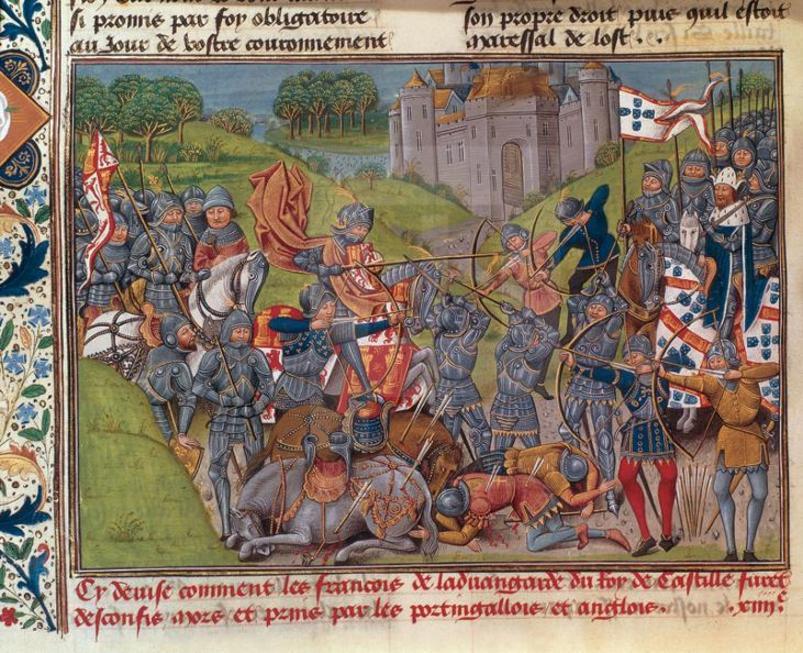 si promis par foy obligatoire
au Jour de vostre couronnement
son propre droit puis quil estoit
maressal de lost . .
Cy deuise comment les francois de laduangarde du Roy de Castille furēt
desconfis mors et prins par les portingallois et anglois .